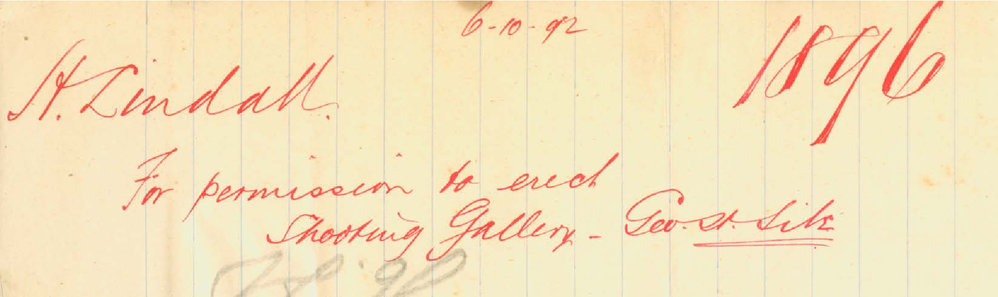 6-10-92
1896
H. Lindall.
For permission to erect
Shooting Gallery - Geo. St. Site